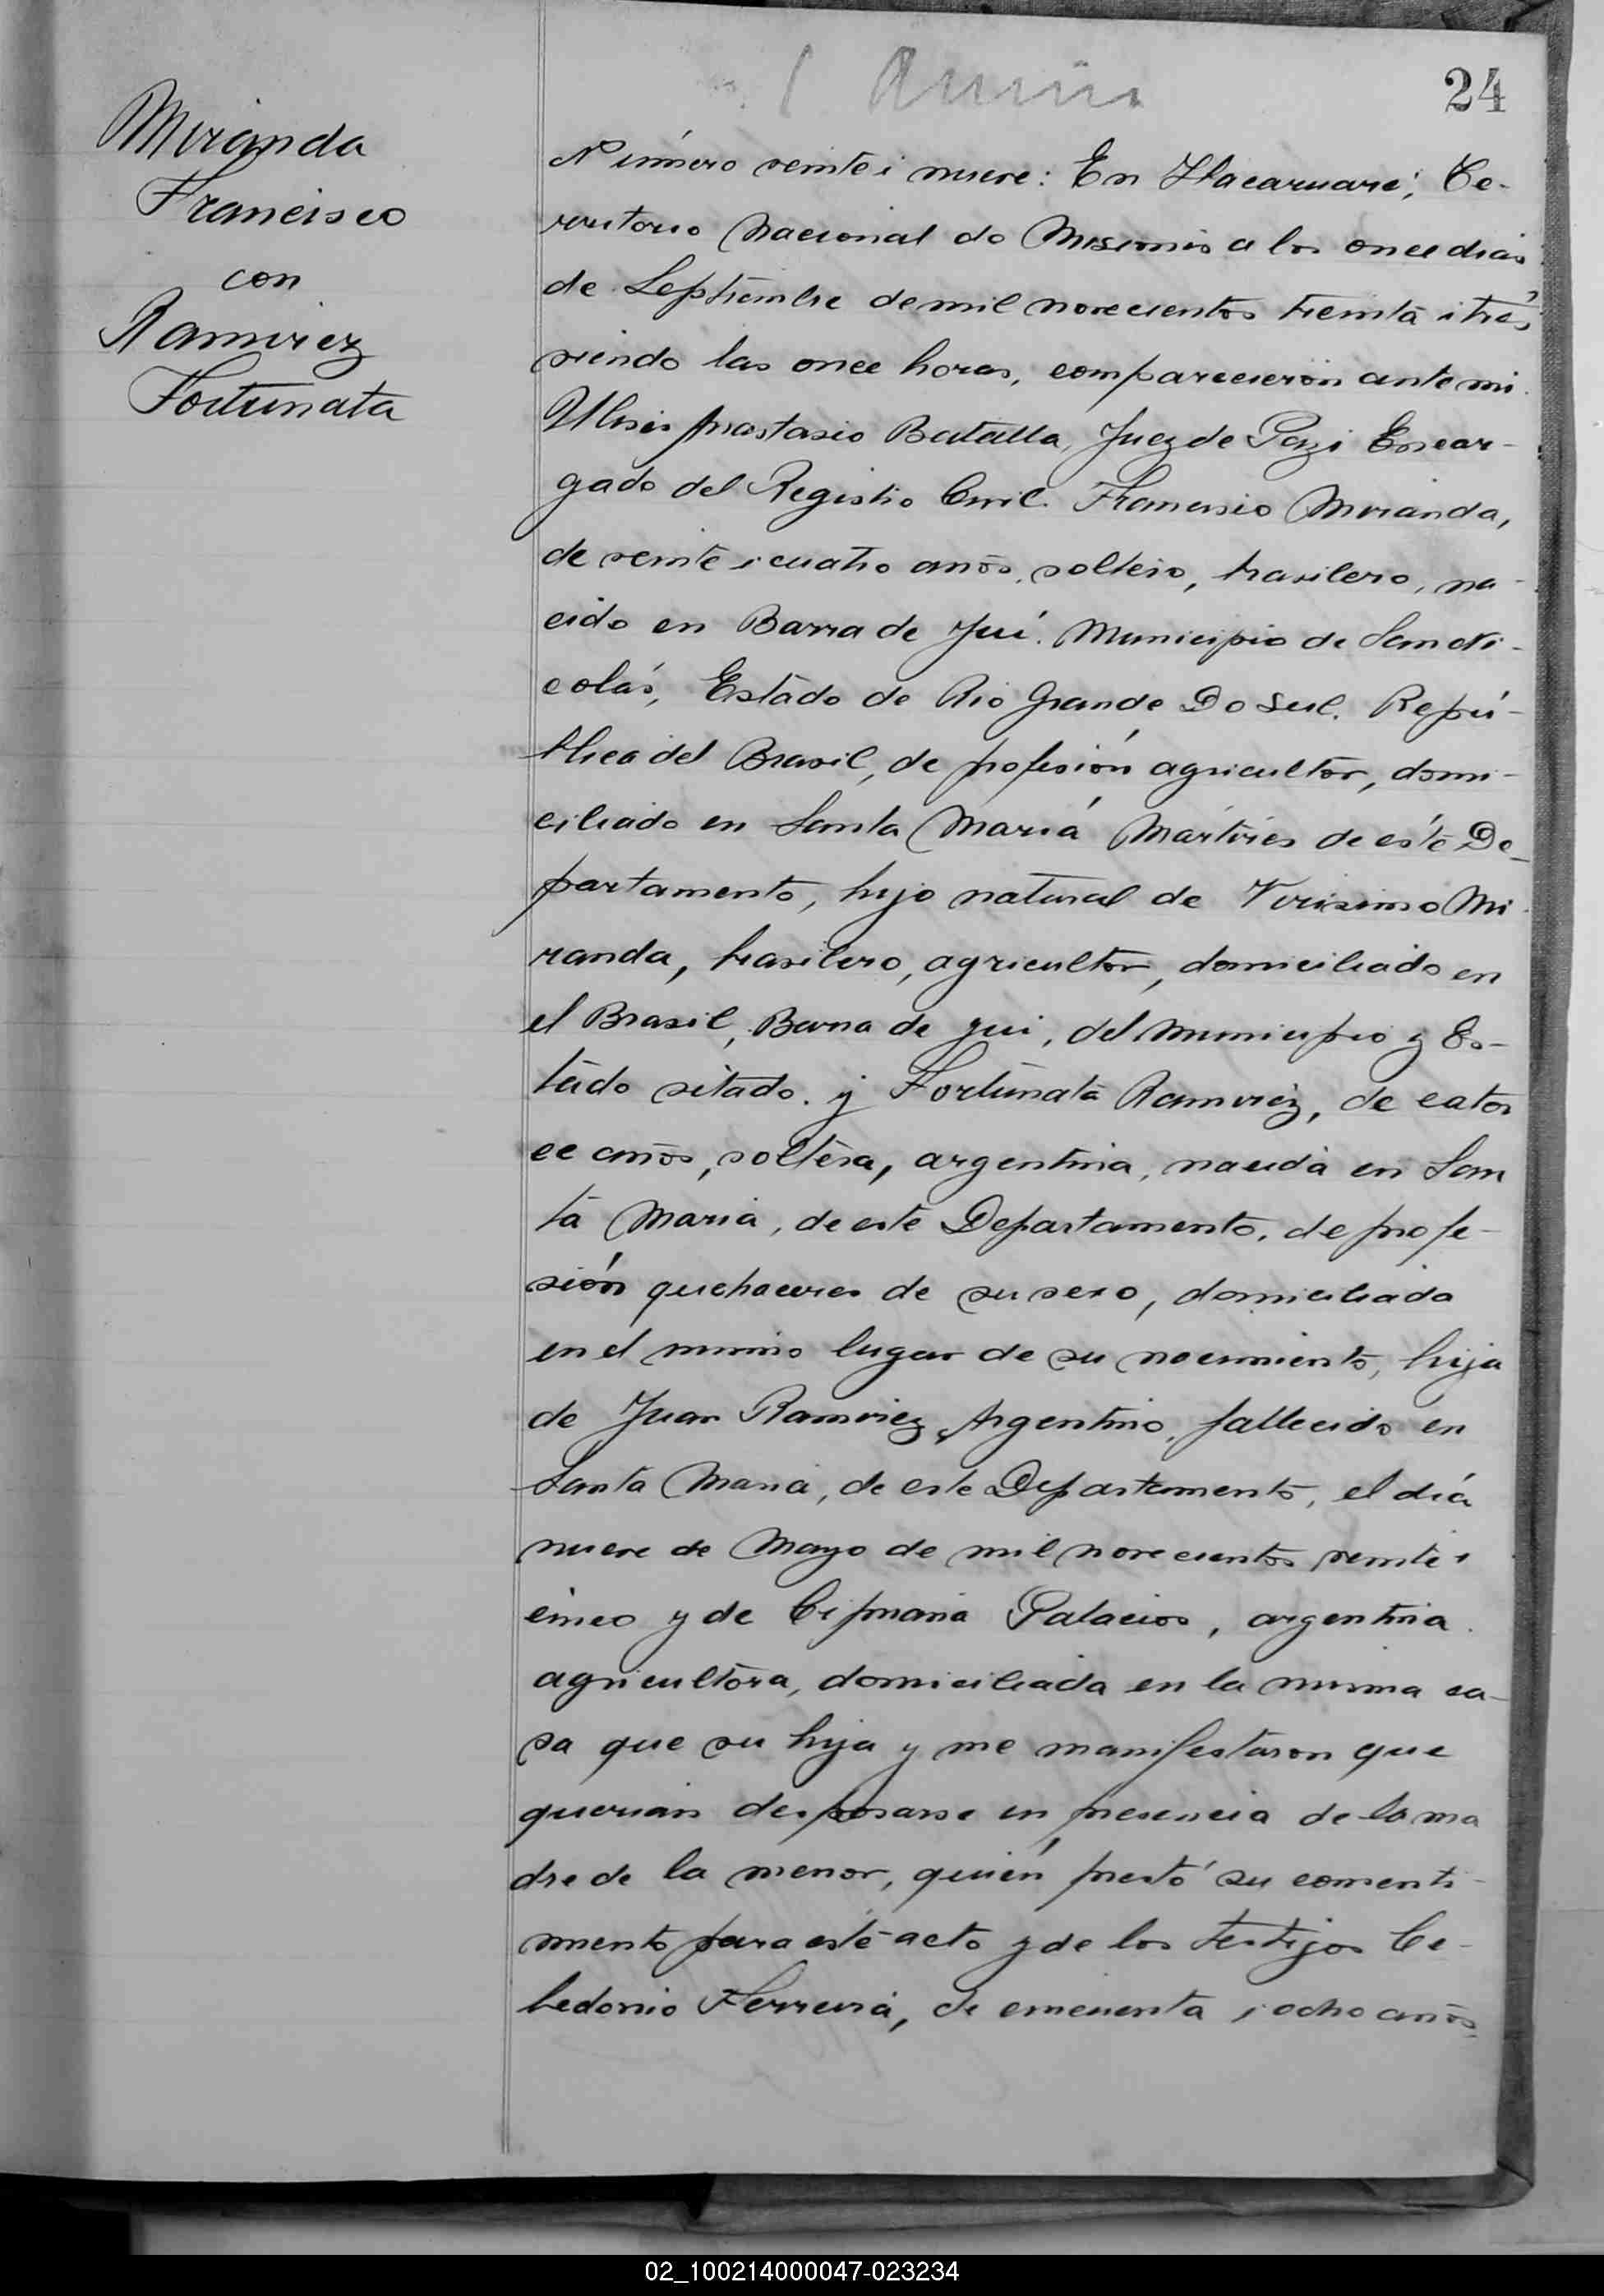 24
Miranda
Francisco
con
Ramirez
Fortunata
Número veinte i nueve: En Itacaruaré, Te-
rritorio Nacional de Misiones a los once dias
de Septiembre de mil novecientos treinta i tres
siendo las once horas, comparecieron ante mi
Ulises Anastasio Batalla, Juez de Paz i Encar-
gado del Registro Civil. Francisco Miranda,
de veinte i cuatro años, soltero, brasilero, na-
cido en Barra de Juí. Municipio de San Ni-
colás, Estado de Rio Grande Do Sul. Repú-
blica del Brasil, de profesión agricultor, domi-
ciliado en Santa María Mártires de éste De-
partamento, hijo natural de Virisimo Mi-
randa, brasilero, agricultor, domiciliado en
el Brasil, Barra de Jui, del Municipio y Es-
tado sitado. y Fortunata Ramirez, de cator
ce años, soltera, argentina, nacida en San
ta Maria, de este Departamento, de profe-
sión quehaceres de su sexo, domiciliada
en el mismo lugar de su nacimiento, hija
de Juan Ramirez, Argentino, fallecido en
Santa Maria, de este Departamento, el día
nueve de Mayo de mil novecientos veinte i
cinco y de Cipriana Palacios, argentina
agricultora, domiciliada en la misma ca-
sa que su hija y me manifestaron que
querian desposarse en presencia de la ma
dre de la menor, quién prestó su consenti-
miento para este acto y de los testigos Ce-
ledonio Ferreira, de cincuenta i ocho años
02_100214000047-023234